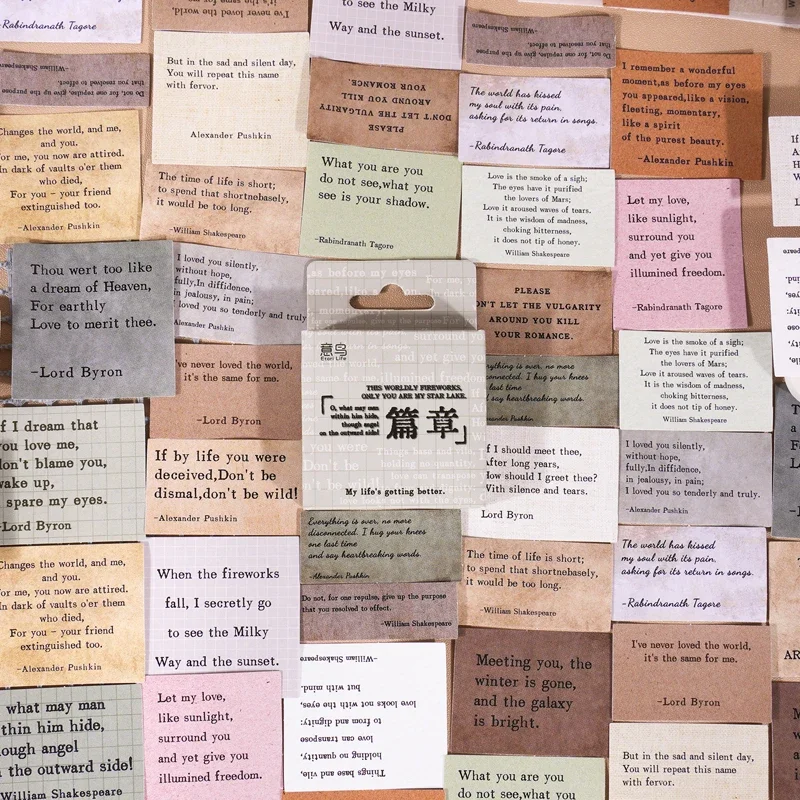 -Rabindranath Tagore
I've never loved the world,
it's the same for me.
to see the Milky
Way and the sunset.
Do not, for one repulse, give up the purpose
that you resolved to effect.
-William Shakespeare
Do not, for one repulse, give up the purpose
that you resolved to effect.
-William Shakespeare
But in the sad and silent day,
You will repeat this name
with fervor.
Alexander Pushkin
PLEASE
DON'T LET THE VULGARITY
AROUND YOU KILL
YOUR ROMANCE.
The world has kissed
my soul with its pain,
asking for its return in songs.
-Rabindranath Tagore
I remember a wonderful
moment,as before my eyes
you appeared,like a vision,
fleeting, momentary,
like a spirit
of the purest beauty.
-Alexander Pushkin
Changes the world, and me,
and you.
For me, you now are attired.
In dark of vaults o'er them
who died,
For you - your friend
extinguished too.
-Alexander Pushkin
The time of life is short;
to spend that shortnebasely,
it would be too long.
-William Shakespeare
What you are you
do not see,what you
see is your shadow.
-Rabindranath Tagore
Love is the smoke of a sigh;
The eyes have it purified
the lovers of Mars;
Love it aroused waves of tears.
It is the wisdom of madness,
choking bitterness,
it does not tip of honey.
William Shakespeare
Let my love,
like sunlight,
surround you
and yet give you
illumined freedom.
-Rabindranath Tagore
Thou wert too like
a dream of Heaven,
For earthly
Love to merit thee.
-Lord Byron
I loved you silently,
without hope,
fully,In diffidence,
in jealousy, in pain;
I loved you so tenderly and truly
Alexander Pushkin
as before my eyes
PLEASE
ON'T LET THE VULGARITY
AROUND YOU KILL
YOUR ROMANCE.
意鸟
Eteri Life
THIS WORLDLY FIREWORKS,
ONLY YOU ARE MY STAR LAKE.
「O, what may man
within him hide,
though angel
on the outward side!
篇章」
My life's getting better.
I've never loved the world,
it's the same for me.
-Lord Byron
erything is over, no more
disconnected. I hug your knees
last time
say heartbreaking words.
Alexander Pushkin
Love is the smoke of a sigh;
The eyes have it purified
the lovers of Mars;
Love it aroused waves of tears.
It is the wisdom of madness,
choking bitterness,
it does not tip of honey.
William Shakespeare
f I dream that
you love me,
don't blame you,
wake up,
spare my eyes.
-Lord Byron
If by life you were
deceived,Don't be
dismal,don't be wild!
-Alexander Pushkin
If I should meet thee,
After long years,
How should I greet thee?
With silence and tears.
Lord Byron
I loved you silently,
without hope,
fully,In diffidence,
in jealousy, in pain;
I loved you so tenderly and truly.
-Alexander Pushkin
Everything is over, no more
disconnected. I hug your knees
one last time
and say heartbreaking words.
-Alexander Pushkin
Changes the world, and me,
and you.
For me, you now are attired.
In dark of vaults o'er them
who died,
For you - your friend
extinguished too.
-Alexander Pushkin
When the fireworks
fall, I secretly go
to see the Milky
Way and the sunset.
Do not, for one repulse, give up the purpose
that you resolved to effect.
-William Shakespeare
The time of life is short;
to spend that shortnebasely,
it would be too long.
-William Shakespeare
The world has kissed
my soul with its pain,
asking for its return in songs.
-Rabindranath Tagore
Meeting you, the
winter is gone,
and the galaxy
is bright.
I've never loved the world,
it's the same for me.
-Lord Byron
what may man
thin him hide,
ough angel
the outward side!
William Shakespeare
Let my love,
like sunlight,
surround you
and yet give you
illumined freedom.
Things base and vile,
holding no quantity,
love can transpose
to from and dignity:
love looks not with the eyes,
but with mind.
-William Shakespeare
What you are you
do not see,what you
But in the sad and silent day,
You will repeat this name
with fervor.